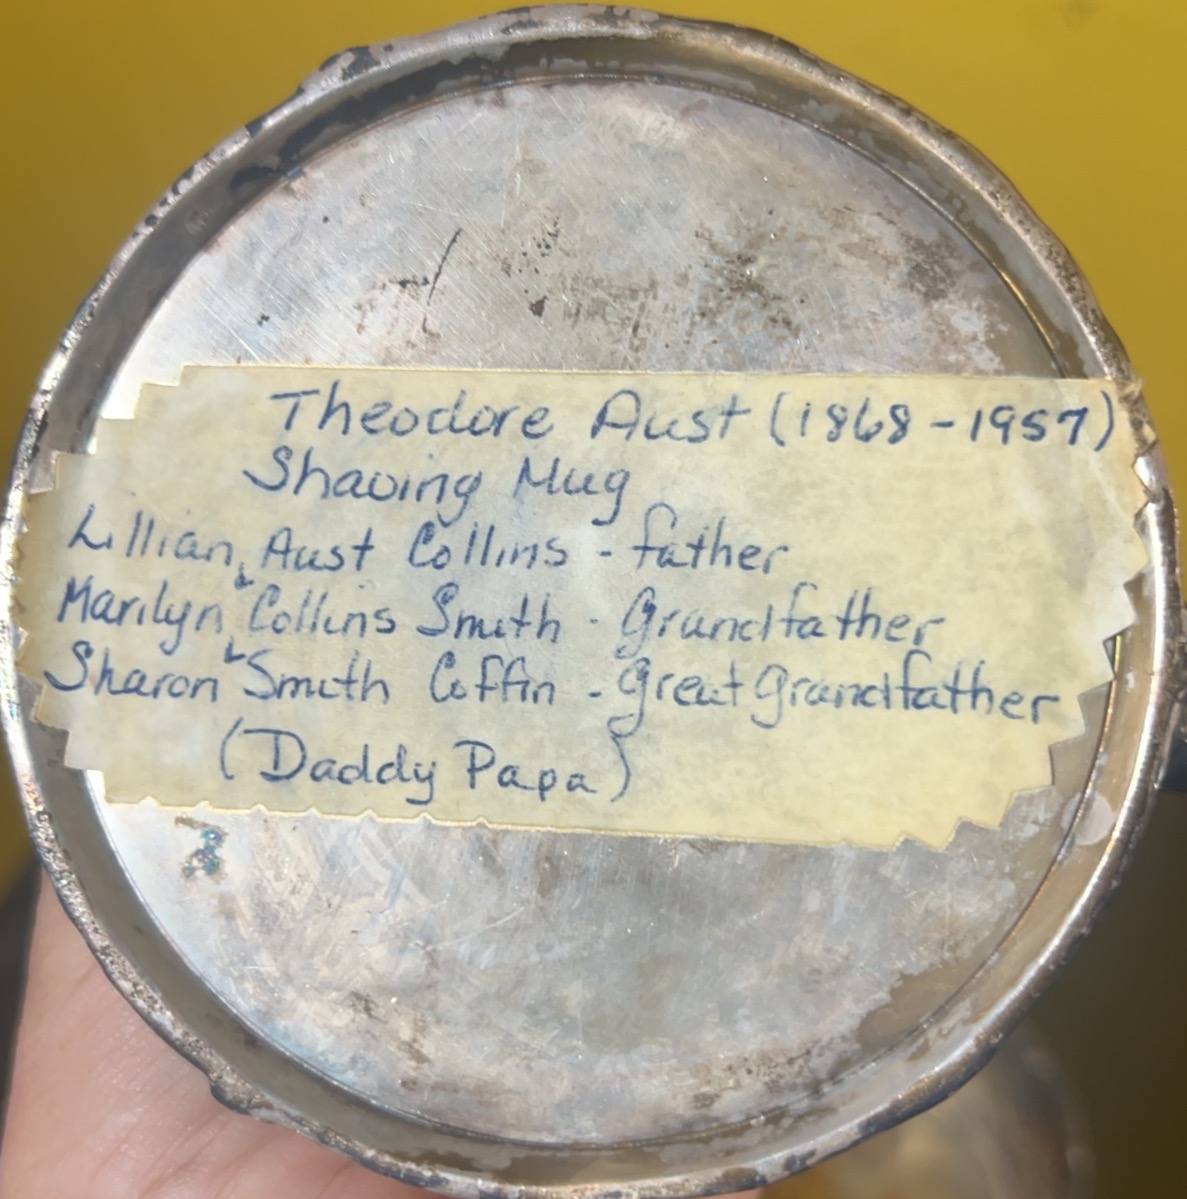 Theodore Aust (1868-1957)
Shaving Mug
Lillian Aust Collins - father
Marilyn Collins Smith - Grandfather
Sharon Smith Coffin - Great Grandfather
(Daddy Papa)